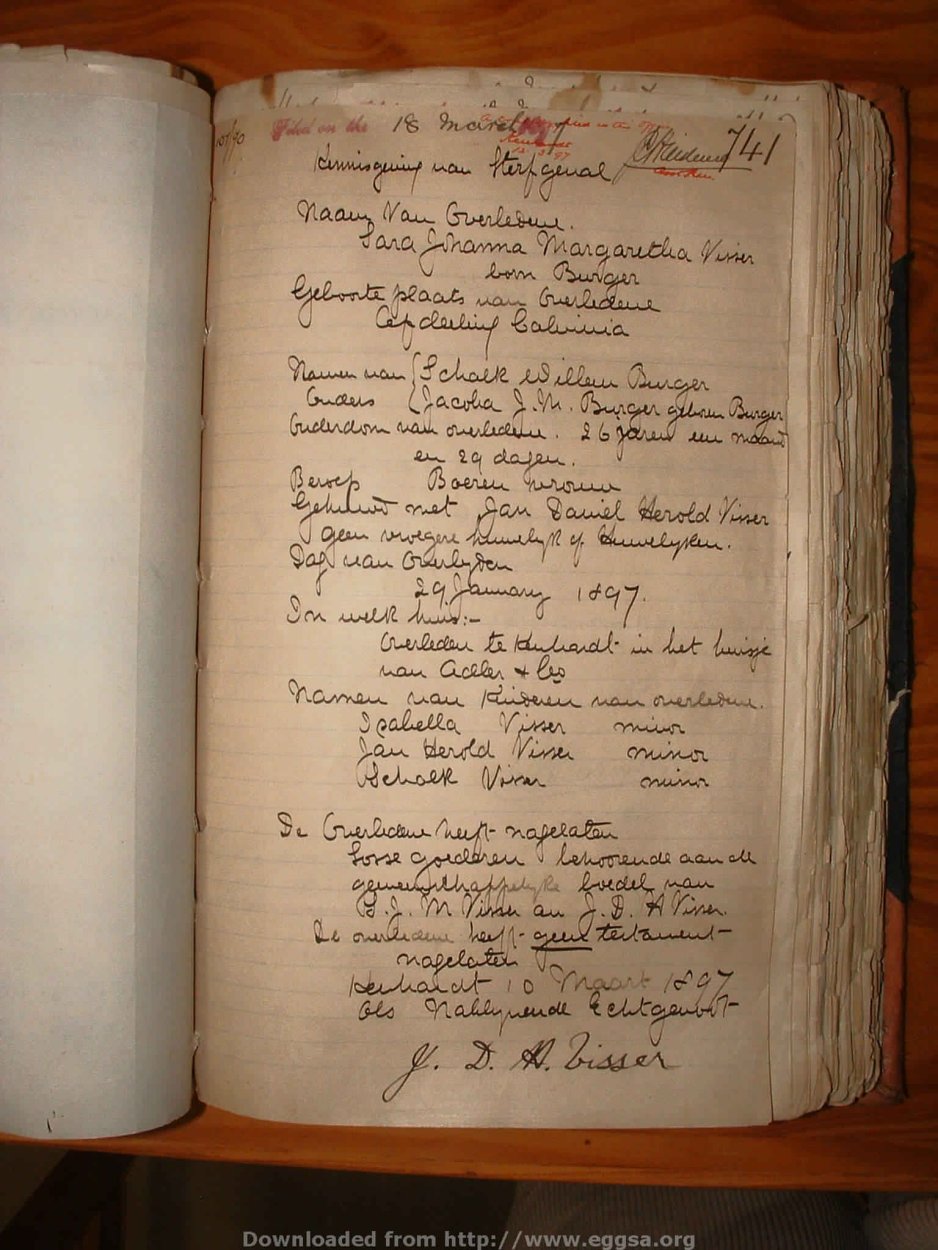 Filed on the 18 March
741
Kennisgeving van Sterfgeval
Naam Van Overledene.
Sara Johanna Margaretha Visser
born Burger
Geboorte plaats van Overledene
Afdeeling Calvinia
Namen van { Schalk Willem Burger
Ouders { Jacoba J. M. Burger geboren Burger
Ouderdom van overledene. 26 Jaren een maand
en 29 dagen.
Beroep Boeren vrouw
Gehuwd met Jan Daniel Herold Visser
geen vroegere huwelyk of Huwelyken.
Dag van Overlyden
29 January 1897.
In welk huis:-
Overleden te Kenhardt in het huisje
van Adler & Co
Namen van Kinderen van overledene.
Isabella Visser minor
Jan Herold Visser minor
Schalk Visser minor
De Overledene heeft nagelaten
Losse goederen behoorende aan de
gemeenschappelyke boedel van
S. J. M Visser en J. D. H Visser.
De overledene heeft geen testament
nagelaten
Kenhardt 10 Maart 1897
Als Nablyvende Echtgenoot
J. D. H. Visser
Downloaded from http://www.eggsa.org